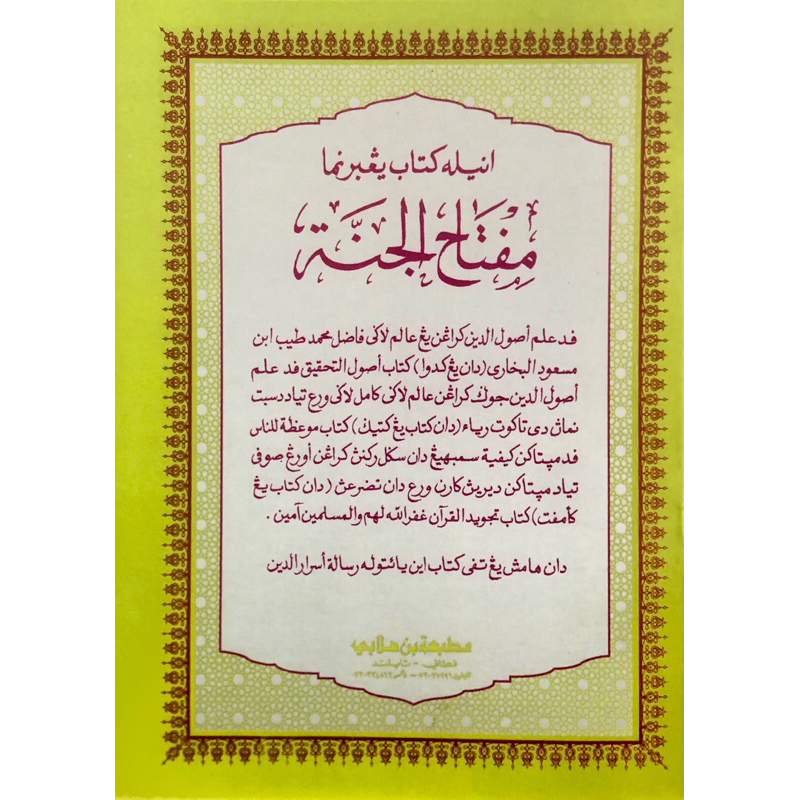 انيله كتاب يڠبرنما
مِفْتَاحُ الْجَنَّة
فد علم أصول الدين كراڠن يڠ عالم لاݢي فاضل محمد طيب ابن
مسعود البخاري (دان يڠ كدوا) كتاب أصول التحقيق فد علم
أصول الدين جوݢ كراڠن عالم لاݢي كامل لاݢي ورع تياد دسبت
نماڽ دي تاكوت رياء (دان كتاب يڠ كتيݢ) كتاب موعظة للناس
فد مڽتاكن كيفية سمبهيڠ دان سݢل ركنڽ كراڠن أورڠ صوفي
تياد مڽتاكن ديريڽ كارن ورع دان تضرعڽ (دان كتاب يڠ
كأمفت) كتاب تجويد القرآن غفر الله لهم والمسلمين آمين.
دان هامش يڠ تفي كتاب اين يائتوله رسالة أسرار الدين
مطبعة بن هلابي
فطاني - تايلند